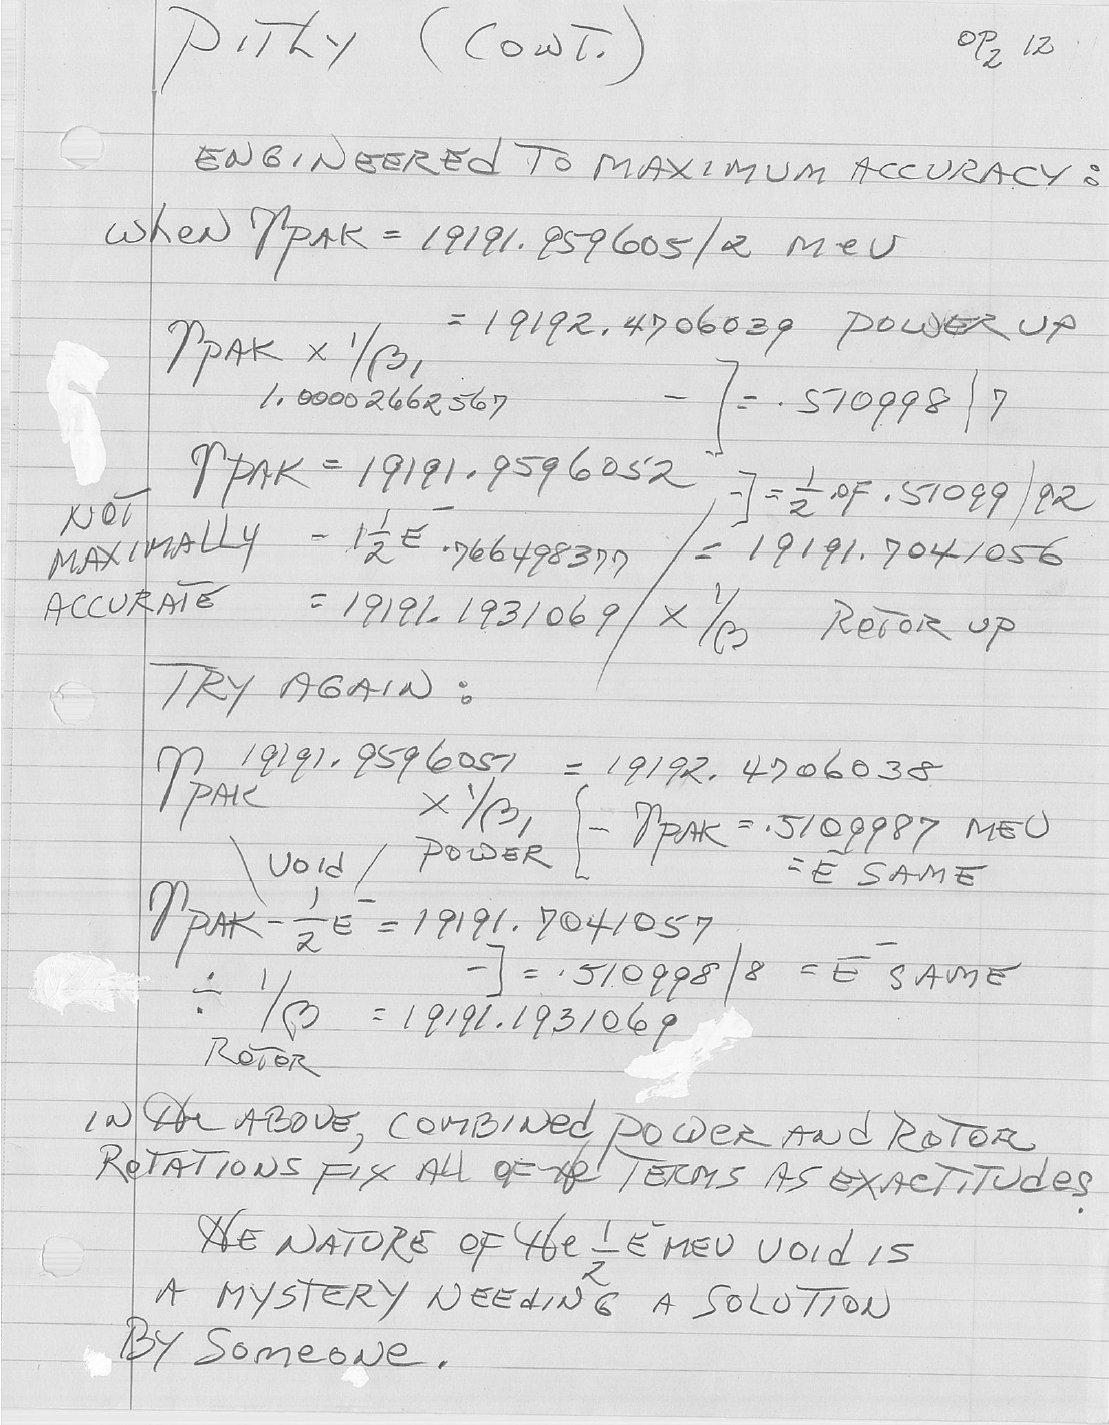 PITHY (CONT.)
OP2 12
ENGINEERED TO MAXIMUM ACCURACY:
WHEN γPAK = 19191.959605/2 MeV
= 19192.4706039 POWER UP
γPAK × 1/β1
1.00002662567
- ] = .510998/7
γPAK = 19191.9596052
- ] = 1/2 OF .51099/92
NOT
MAXIMALLY
ACCURATE
- 1 1/2 E⁻ .766498377 / = 19191.7041056
= 19191.1931069 / × 1/β ROTOR UP
TRY AGAIN:
γPAK 19191.9596051 = 19192.4706038
× 1/β1 [ - γPAK = .5109987 MEV
\ VOID / POWER = E⁻ SAME
γPAK - 1/2 E⁻ = 19191.7041057
- ] = .510998/8 = E⁻ SAME
÷ 1/β = 19191.1931069
ROTOR
IN THE ABOVE, COMBINED POWER AND ROTOR
ROTATIONS FIX ALL OF THE TERMS AS EXACTITUDES.
THE NATURE OF THE 1/2 E⁻ MEV VOID IS
A MYSTERY NEEDING A SOLUTION
BY SOMEONE.